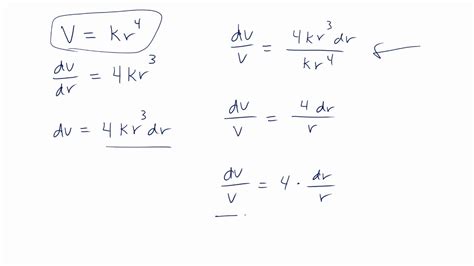 V = kr⁴
dv/dr = 4kr³
dv = 4kr³dr
dv/v = 4kr³dr/kr⁴
dv/v = 4dr/r
dv/v = 4 · dr/r